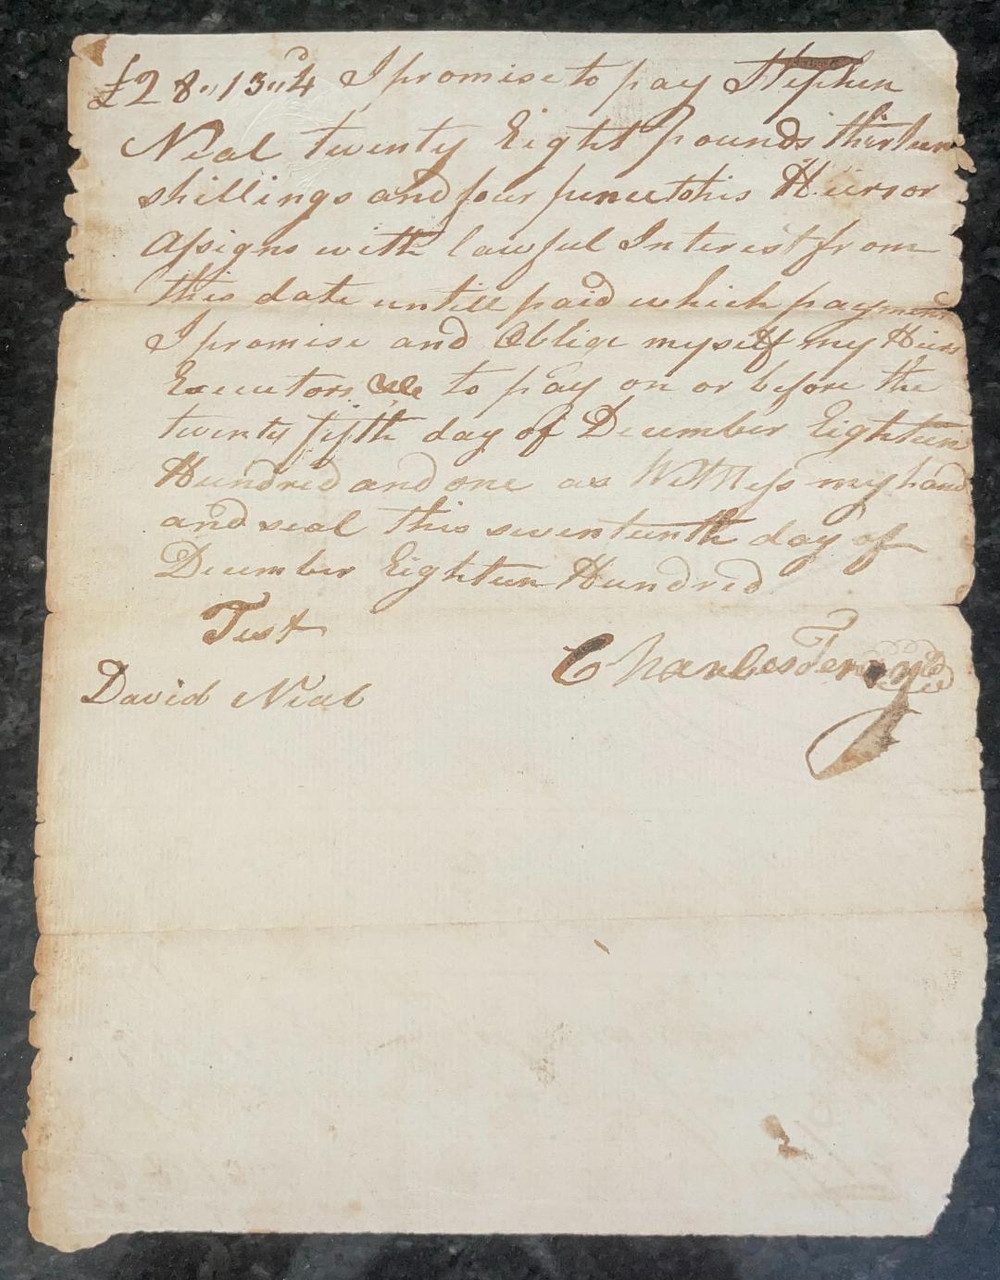 £28,,13,,4d I promise to pay Stephen
Nial twenty Eight pounds thirteen
shillings and four pence to his Heirs or
Assigns with lawful Interest from
this date untill paid which payment
I promise and Oblige myself my Heirs
Executors &c to pay on or before the
twenty fifth day of December Eighteen
Hundred and one as Wittness my hand
and seal this seventeenth day of
December Eighteen Hundred
Test
Charles Terry
David Nial